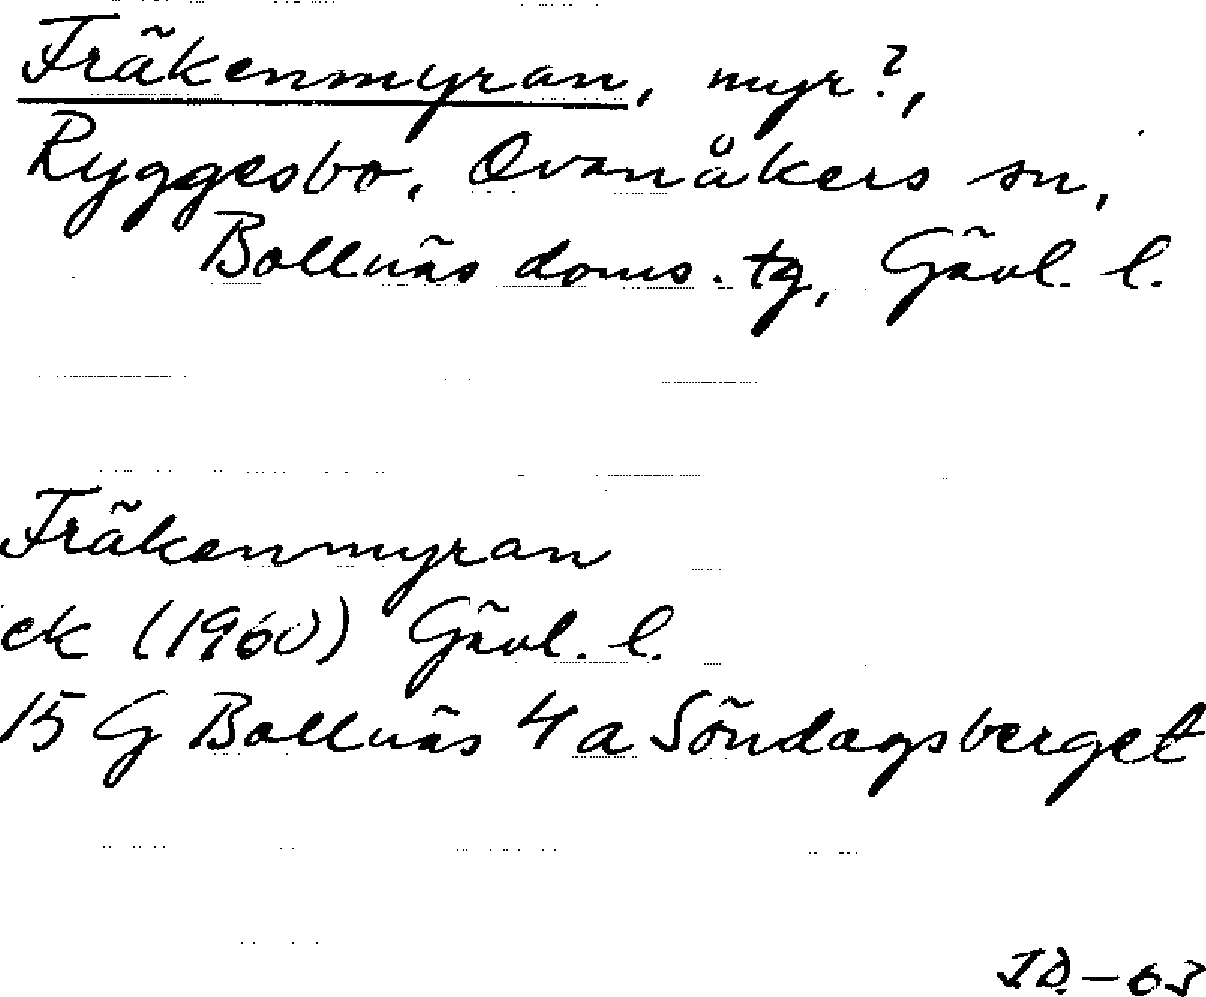 Fräkenmyran, myr?,
Ryggesbo, Ovanåkers sn,
Bollnäs doms. tg, Gävl. l.
Fräkenmyran
ek (1960) Gävl. l.
15 G Bollnäs 4 a Söndagsberget
-63